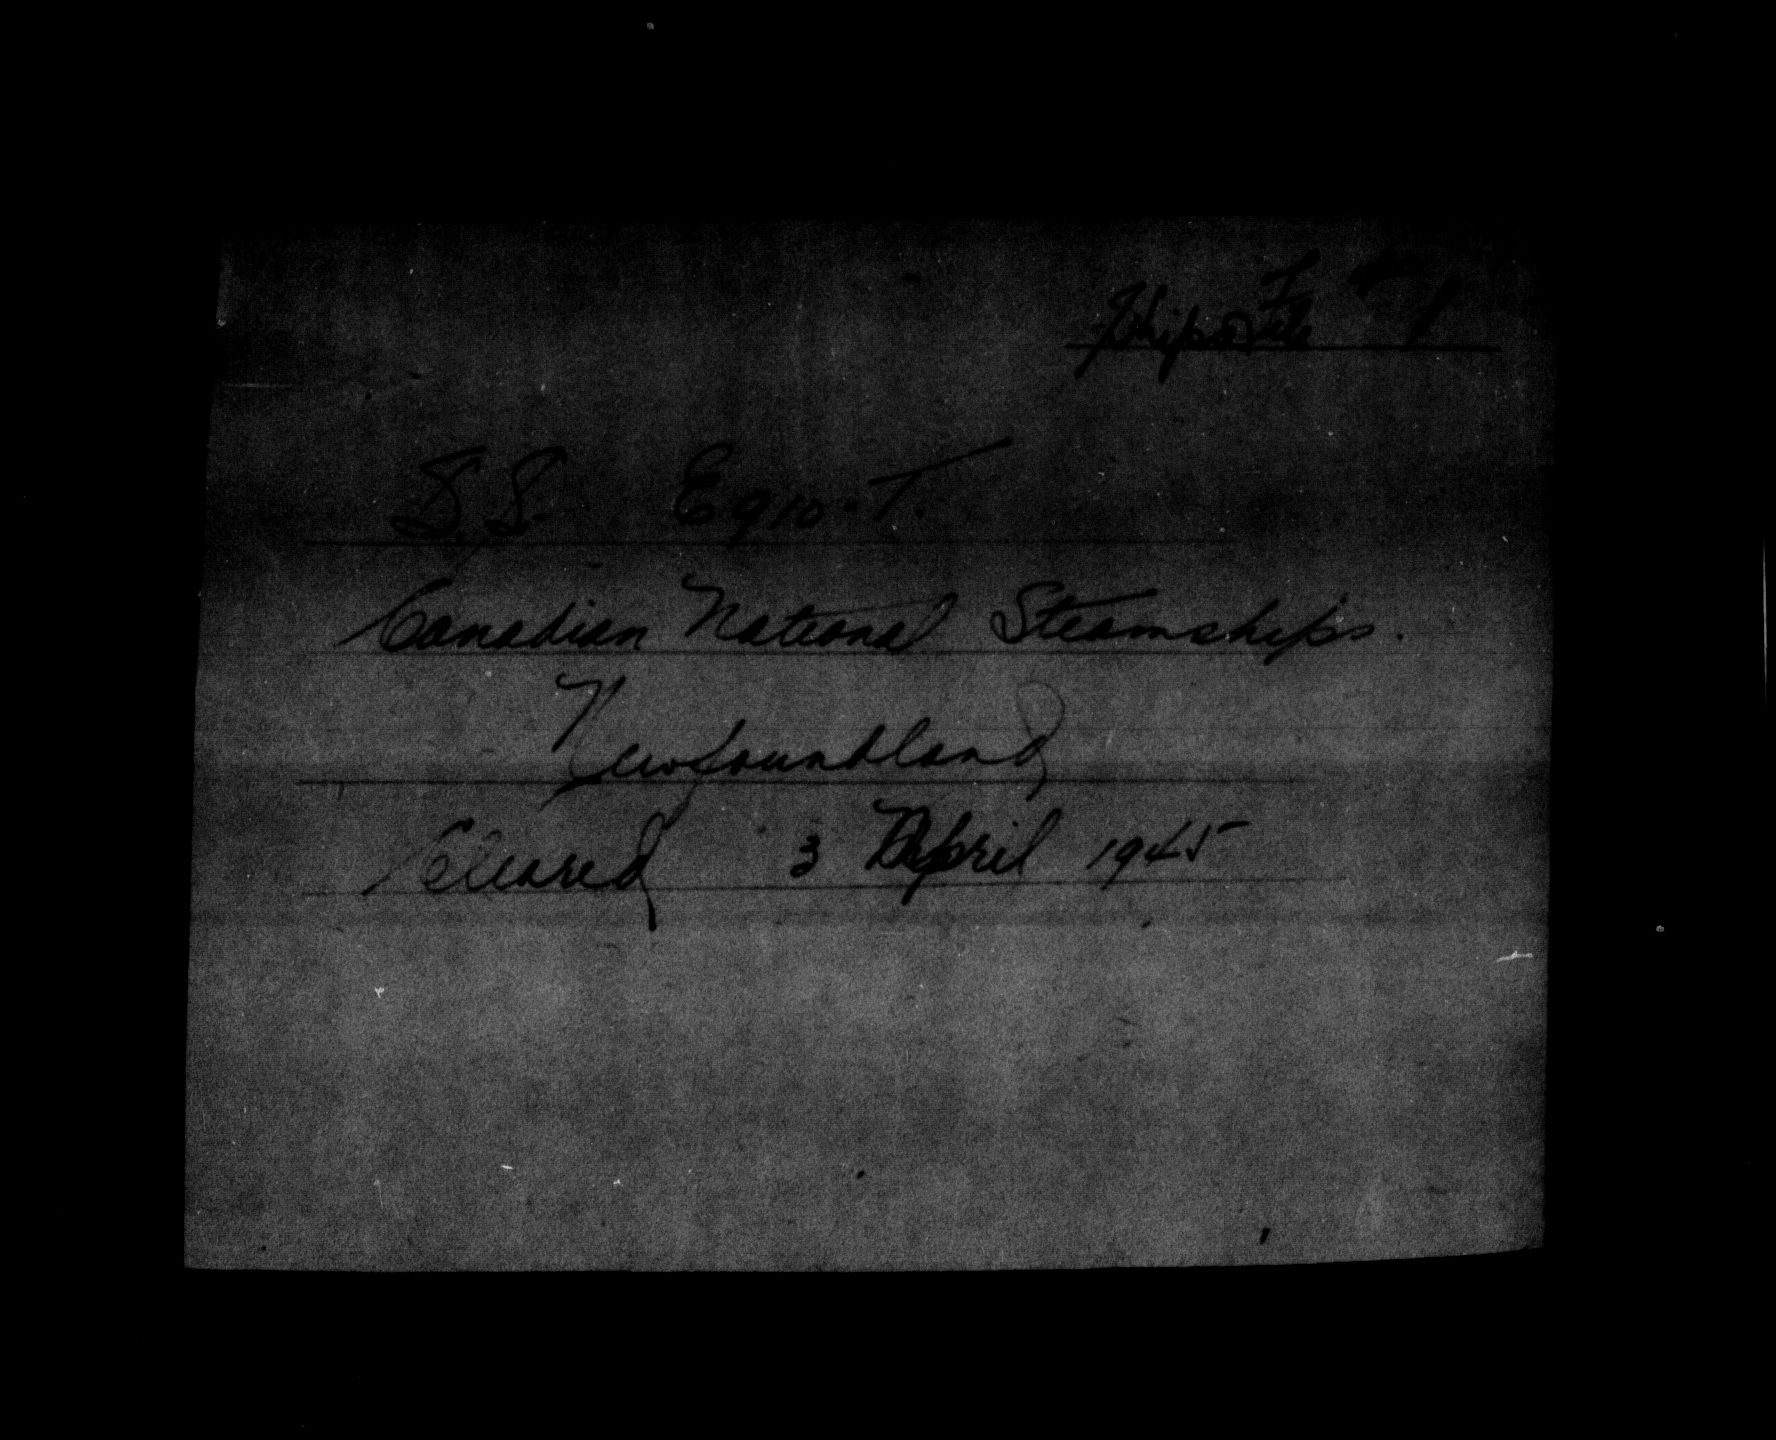 S.S. Eg10.T.
Canadian National Steamships.
Newfoundland
Cleared 3 April 1945